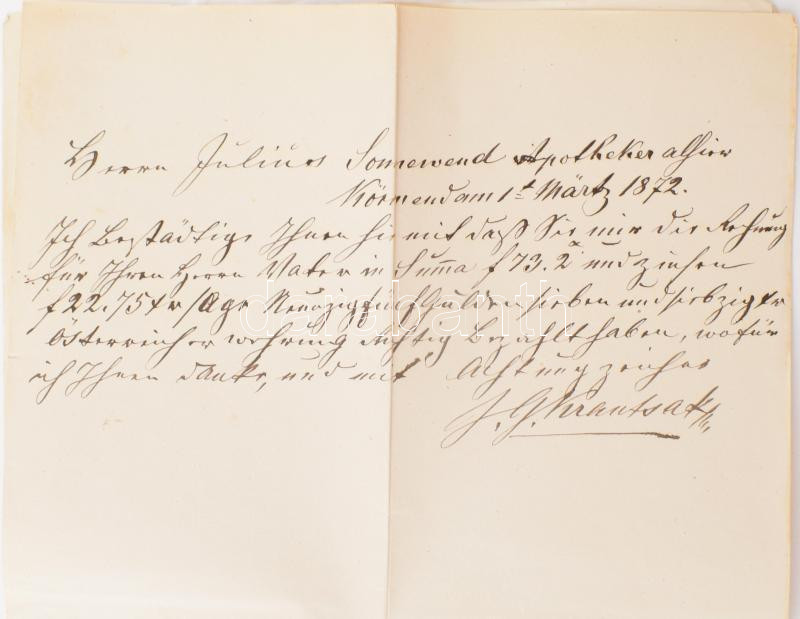 Herrn Julius Somewend Apotheker alhier
Körmend am 1t Märtz 1872.
Ich Bestädtige Ihnen hiemit daß Sie mir die Rechnung
für Ihren Herrn Vater in Summa f 73. 2x und zinsen
f 22.75 xr / Age Neunzigfünf Gulden sieben und siebzig xr
Österreicher wehrung richtig Bezahlt haben, wofür
ich Ihnen danke, und mit Achtung zeiche
J. G. Krantsak
darabanth